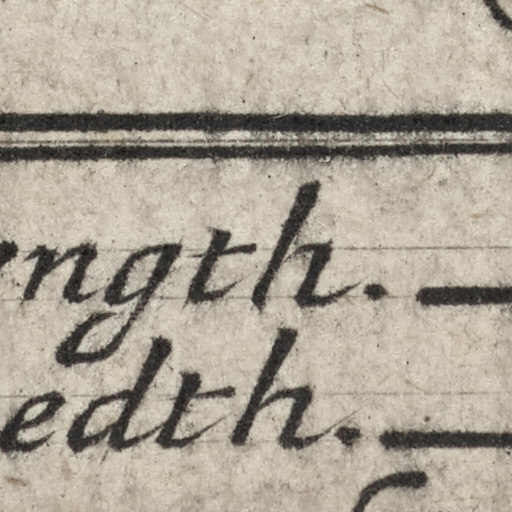 ngth. —
edth. —